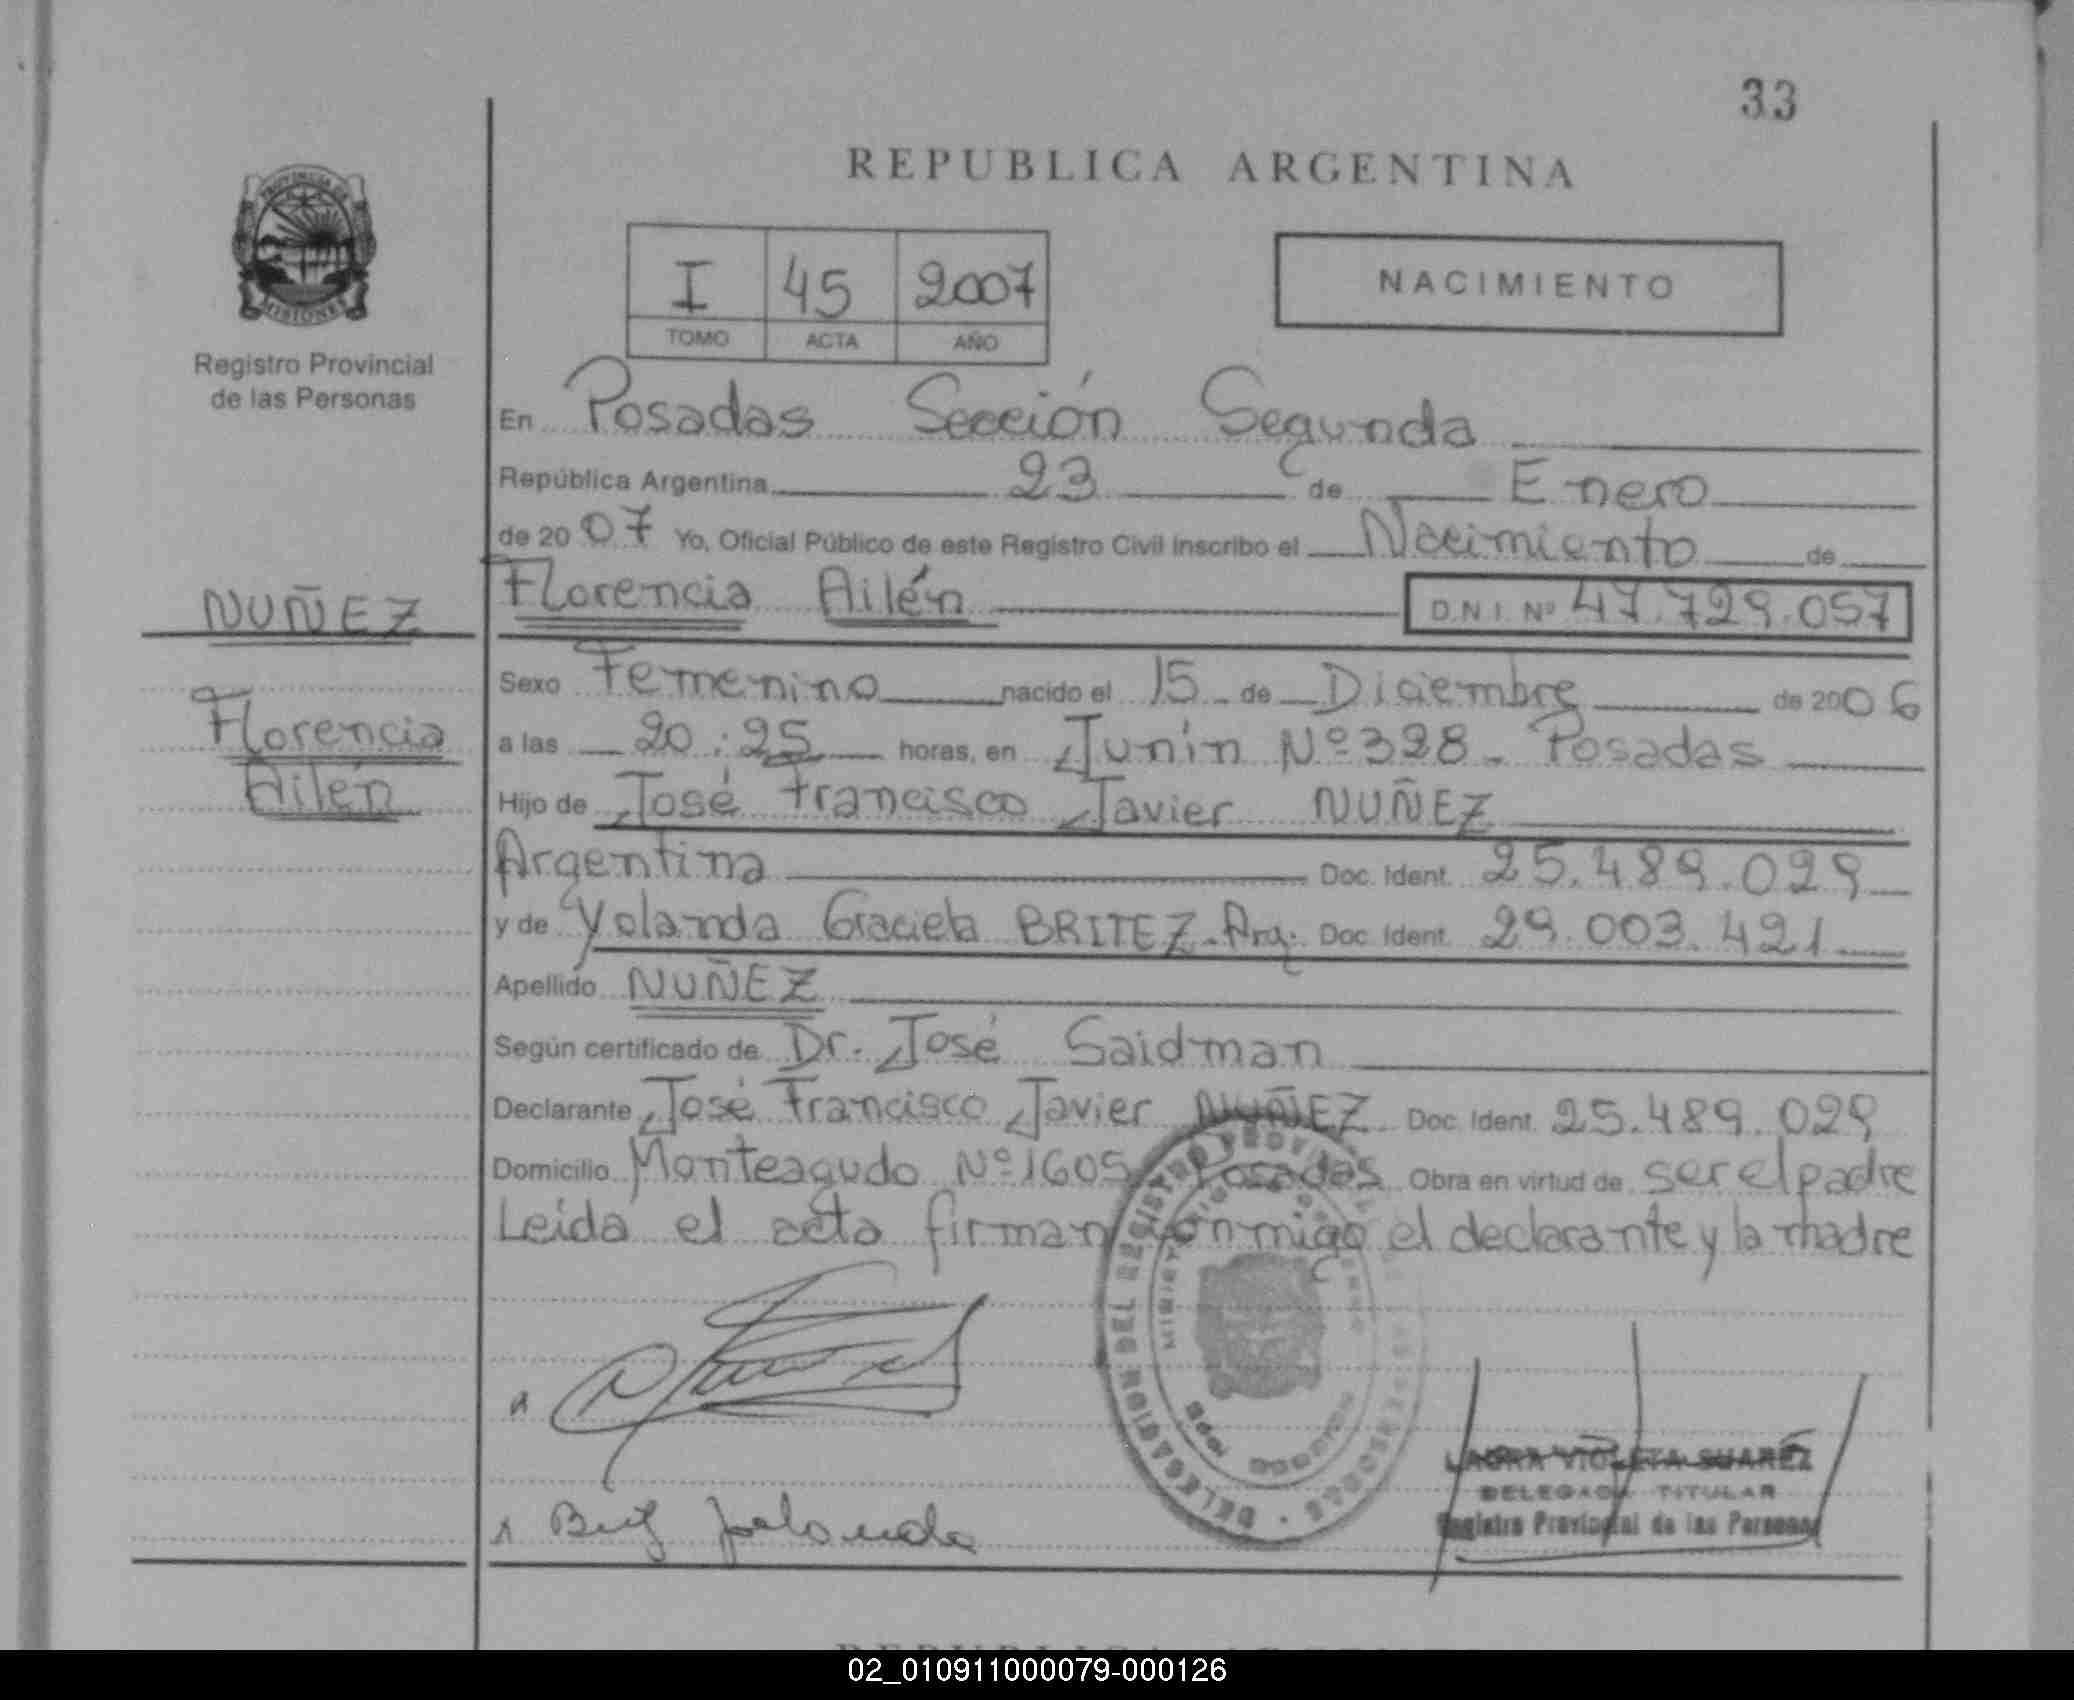 33
REPUBLICA ARGENTINA
PROVINCIA DE
MISIONES
Registro Provincial
de las Personas
I 45 2007
TOMO ACTA AÑO
NACIMIENTO
En Posadas Sección Segunda
República Argentina 23 de Enero
de 2007 Yo, Oficial Público de este Registro Civil inscribo el Nacimiento de
NUÑEZ
Florencia Ailén D.N.I. Nº 47.729.057
Sexo Femenino nacido el 15 de Diciembre de 2006
Florencia
Ailén
a las 20:25 horas, en Junín Nº 328. Posadas
Hijo de José Francisco Javier NUÑEZ
Argentina Doc. Ident. 25.489.029
y de Yolanda Graciela BRITEZ. Arg. Doc. Ident. 29.003.421
Apellido NUÑEZ
Según certificado de Dr. José Saidman
Declarante José Francisco Javier NUÑEZ Doc. Ident. 25.489.029
Domicilio Monteagudo Nº 1605 Posadas Obra en virtud de ser el padre
Leida el acta firman conmigo el declarante y la madre
LAURA VIOLETA SUAREZ
DELEGADA TITULAR
Registro Provincial de las Personas
Yolanda
02_010911000079-000126